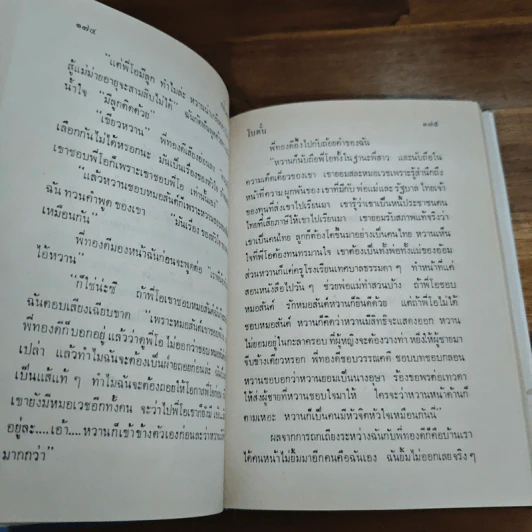 ๑๗๔
"แต่พี่ไอมีลูก ทำไมล่ะ
สู้แม่ม่ายอายุจะสามสิบไม่ได้"
น้ำใจ "มีลูกติดด้วย"
"เขียวหวาน"
เลือกกันไม่ได้หรอกนะ มันเป็นเรื่องของ
เขาชอบพี่ไอก็เพราะเขาชอบพี่ไอ เท่านั้นเอง"
"แล้วหวานชอบหมอสันต์ก็เพราะหวานชอบ
ฉัน ทวนคำพูด ของเขา "มันเรื่อง ของ
เหมือนกัน"
พี่ทองดีมองหน้าฉันก่อนจะพูดต่อ
ไอ้หวาน"
"ก็ใช่น่ะซี ถ้าพี่ไอเขาชอบหมอสันต์ก็
ฉันตอบเสียงเฉียบขาด "เพราะหมอสันต์เขา
พี่ทองดีก็บอกอยู่ แล้วว่าดูพี่ไอ ไม่ออกว่าชอบหมอ
เปล่า แล้วทำไมฉันจะต้องเป็นฝ่ายถอยก่อนล่ะ
เป็นแส้แท้ ๆ ทำไมฉันจะต้องถอยให้โอกาสพี่ไอก่อน
เขายังมีหมอเวชอีกทั้งคน จะว่าไปพี่ไอเขายัง
อยู่ล่ะ.....เอ้า....หวานก็เข้าข้างตัวเองก่อนละว่าหวาน
มากกว่า"
ใบตั้น ๑๗๕
พี่ทองดีอึ้งไปกับถ้อยคำของฉัน
"หวานก็นับถือพี่ไอทั้งในฐานะพี่สาว และนับถือใน
ความเด็ดเดี่ยวของเขา เขายอมสละหมอเวชเพราะรู้สำนึกถึง
หน้าที่ความ ผูกพันของเขาที่มีกับ พ่อแม่และ รัฐบาล ไทยเจ้า
ของทุนที่ส่งเขาไปเรียนมา เขารู้ว่าเขาเป็นหนี้ประชาชนคน
ไทยที่เสียภาษีให้เขาไปเรียนมา เขายอมรับสภาพแท้จริงว่า
เขาเป็นคนไทย ลูกก็ต้องโตขึ้นมาอย่างเป็นคนไทย หวานเห็น
ใจที่พี่ไอต้องทนทรมานใจ เขาต้องเป็นทั้งพ่อทั้งแม่ของย้อม
ส่วนหวานก็แค่ครูโรงเรียนเทศบาลธรรมดา ๆ ทำหน้าที่แค่
สอนหนังสือไปวัน ๆ ช่วยพ่อแม่ทำสวนบ้าง ถ้าพี่ไอชอบ
หมอสันต์ รักหมอสันต์หวานก็ยินดีด้วย แต่ถ้าพี่ไอไม่ได้
ชอบหมอสันต์ หวานก็คิดว่าหวานมีสิทธิจะแสดงออก หวาน
ไม่ยอมอยู่ในกะลาครอบ ที่ผู้หญิงจะต้องวางท่า หยิ่งให้ผู้ชายมา
จีบข้างเดียวหรอก พี่ทองดีชอบวรรณคดี ชอบบทชอบกลอน
หวานชอบบอกว่าหวานยอมเป็นนางอุษา ร้องขอพรต่อเทวดา
ให้ส่งผู้ชายที่หวานชอบใจมาให้ ใครจะว่าหวานหน้าด้านก็
ตามเหอะ หวานก็เป็นคนมีหัวจิตหัวใจเหมือนกันนี่"
ผลจากการถกเถียงระหว่างฉันกับพี่ทองดีก็คือบ้านเรา
ได้คนหน้าไม่ยิ้มมาอีกคนคือฉันเอง ฉันยิ้มไม่ออกเลยจริง ๆ